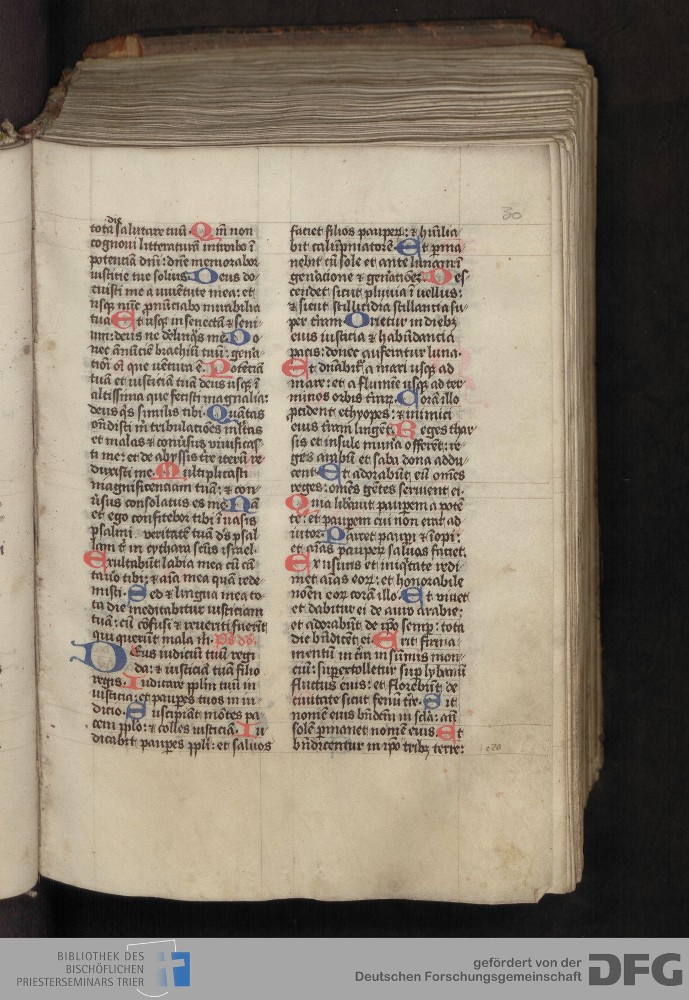 30
die
tota salutare tuū. Qm̄ non
cognoui litteraturā introibo ī
potentiā dnī: dn̄e memorabor
iusticie tue solius. Deus do-
cuisti me a iuuētute mea: et
usq; nūc pronūciabo mirabilia
tua. Et usq; in senectā & seni-
um: deus ne delinq̄s me. Do-
nec annūciē brachiū tuū: gen̄a-
tiōi oī que uētura ē. Potēciā
tuā et iusticiā tuā deus usq; ī
altissima que fecisti magnalia:
deus q̄s similis tibi. Quātas
on̄disti m̄ tribulatiōes m̄ltas
et malas & con̄usus uiuificas-
ti me: et de abyssis tr̄e iterū re-
duxisti me. Multiplicasti
magnificenciam tuā: & con-
ūsus consolatus es me. Nā
et ego confitebor tibi ī uasis
psalmi ueritatē tuā ds̄ psal-
lam t̄ in cythara sc̄us israel.
Exultabūt labia mea cū cā-
tauo tibi: & aīa mea quā rede-
misti. Sed & lingua mea to-
ta die meditabitur iusticiam
tuā: cū cōfusi & reueriti fuerīt
qui querūt mala m̄. Ps ds̄.
Deus iudiciū tuū regi
da: & iusticiā tuā filio
regis. Iudicare pplm̄ tuū in
iusticia: et paupes tuos in iu-
dicio. Suscipiāt mōtes pa-
cem pplo: & colles iusticiā. Iu-
dicabit paup̄es ppli: et saluos
faciet filios pauper̄: & hūilia-
bit calūpniatorē. Et p̄ma-
nebit cū sole et ante lunam: ī
gen̄atione & gen̄atiōez. Des-
cendet sicut pluuia ī uellus:
& sicut stillicidia stillantia su-
per terram. Orietur in diebz
eius iusticia & habūdancia
pacis: donec auferatur luna.
Et dn̄abit̄ a mari usq; ad
mare: et a flumīe usq; ad ter-
minos orbis terrar̄. Corā illo
p̄cident ethyopes: & inimici
eius terram lingēt. Reges thar-
sis et insule mun̄a offerēt: re-
ges arabū et saba dona addu-
cent. Et adorabūt eū omēs
reges: omēs gētes seruient ei.
Quia liberauit paup̄em a potē-
te: et paup̄em cui non erat ad-
iutor. Parcet paup̄i & īopi:
et aīas pauper̄ saluas faciet.
Ex usuris et iniq̄tate redi-
met aīas eor̄: et honorabile
nomen eor̄ corā illo. Et viuet
et dabitur ei de auro arabie:
et adorabūt de ip̄o semp̄: tota
die bn̄dicēt ei. Erit firma-
mentū in tr̄a in sūmis mon-
ciū: sup̄extolletur sup̄ lybanū
fluctus eius: et florebūt de
ciuitate sicut fenū tr̄e. Sit
nomē eius bn̄dictū in sc̄la: an̄
solē p̄manet nomē eius. Et
bn̄dicentur in ip̄o tribz terre:
BIBLIOTHEK DES
BISCHÖFLICHEN
PRIESTERSEMINARS TRIER
gefördert von der
Deutschen Forschungsgemeinschaft
DFG